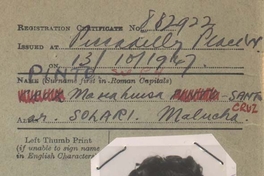 REGISTRATION CERTIFICATE No. 882922
ISSUED AT Piccadilly Place W.
ON 13/10/1947
PINTO
NAME (Surname first in Roman Capitals)
SANTA
CRUZ
SOLARI. Malucha.
Left Thumb Print
(if unable to sign name
in English Characters)